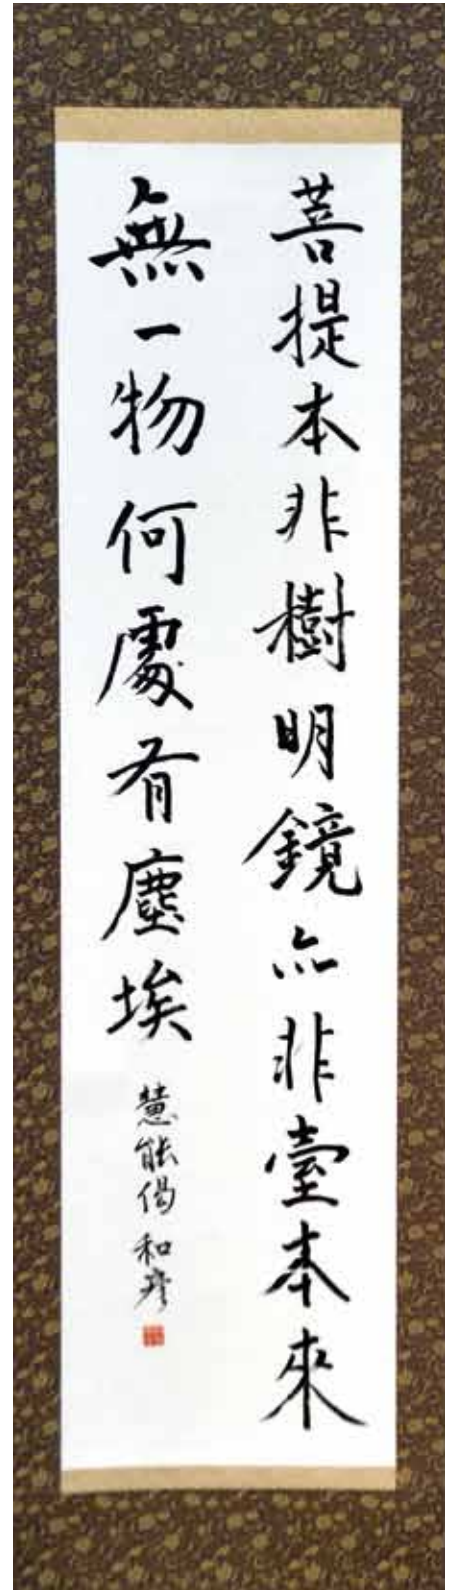 菩提本非樹明鏡亦非臺本來
無一物何處有塵埃
慧能偈 和彦